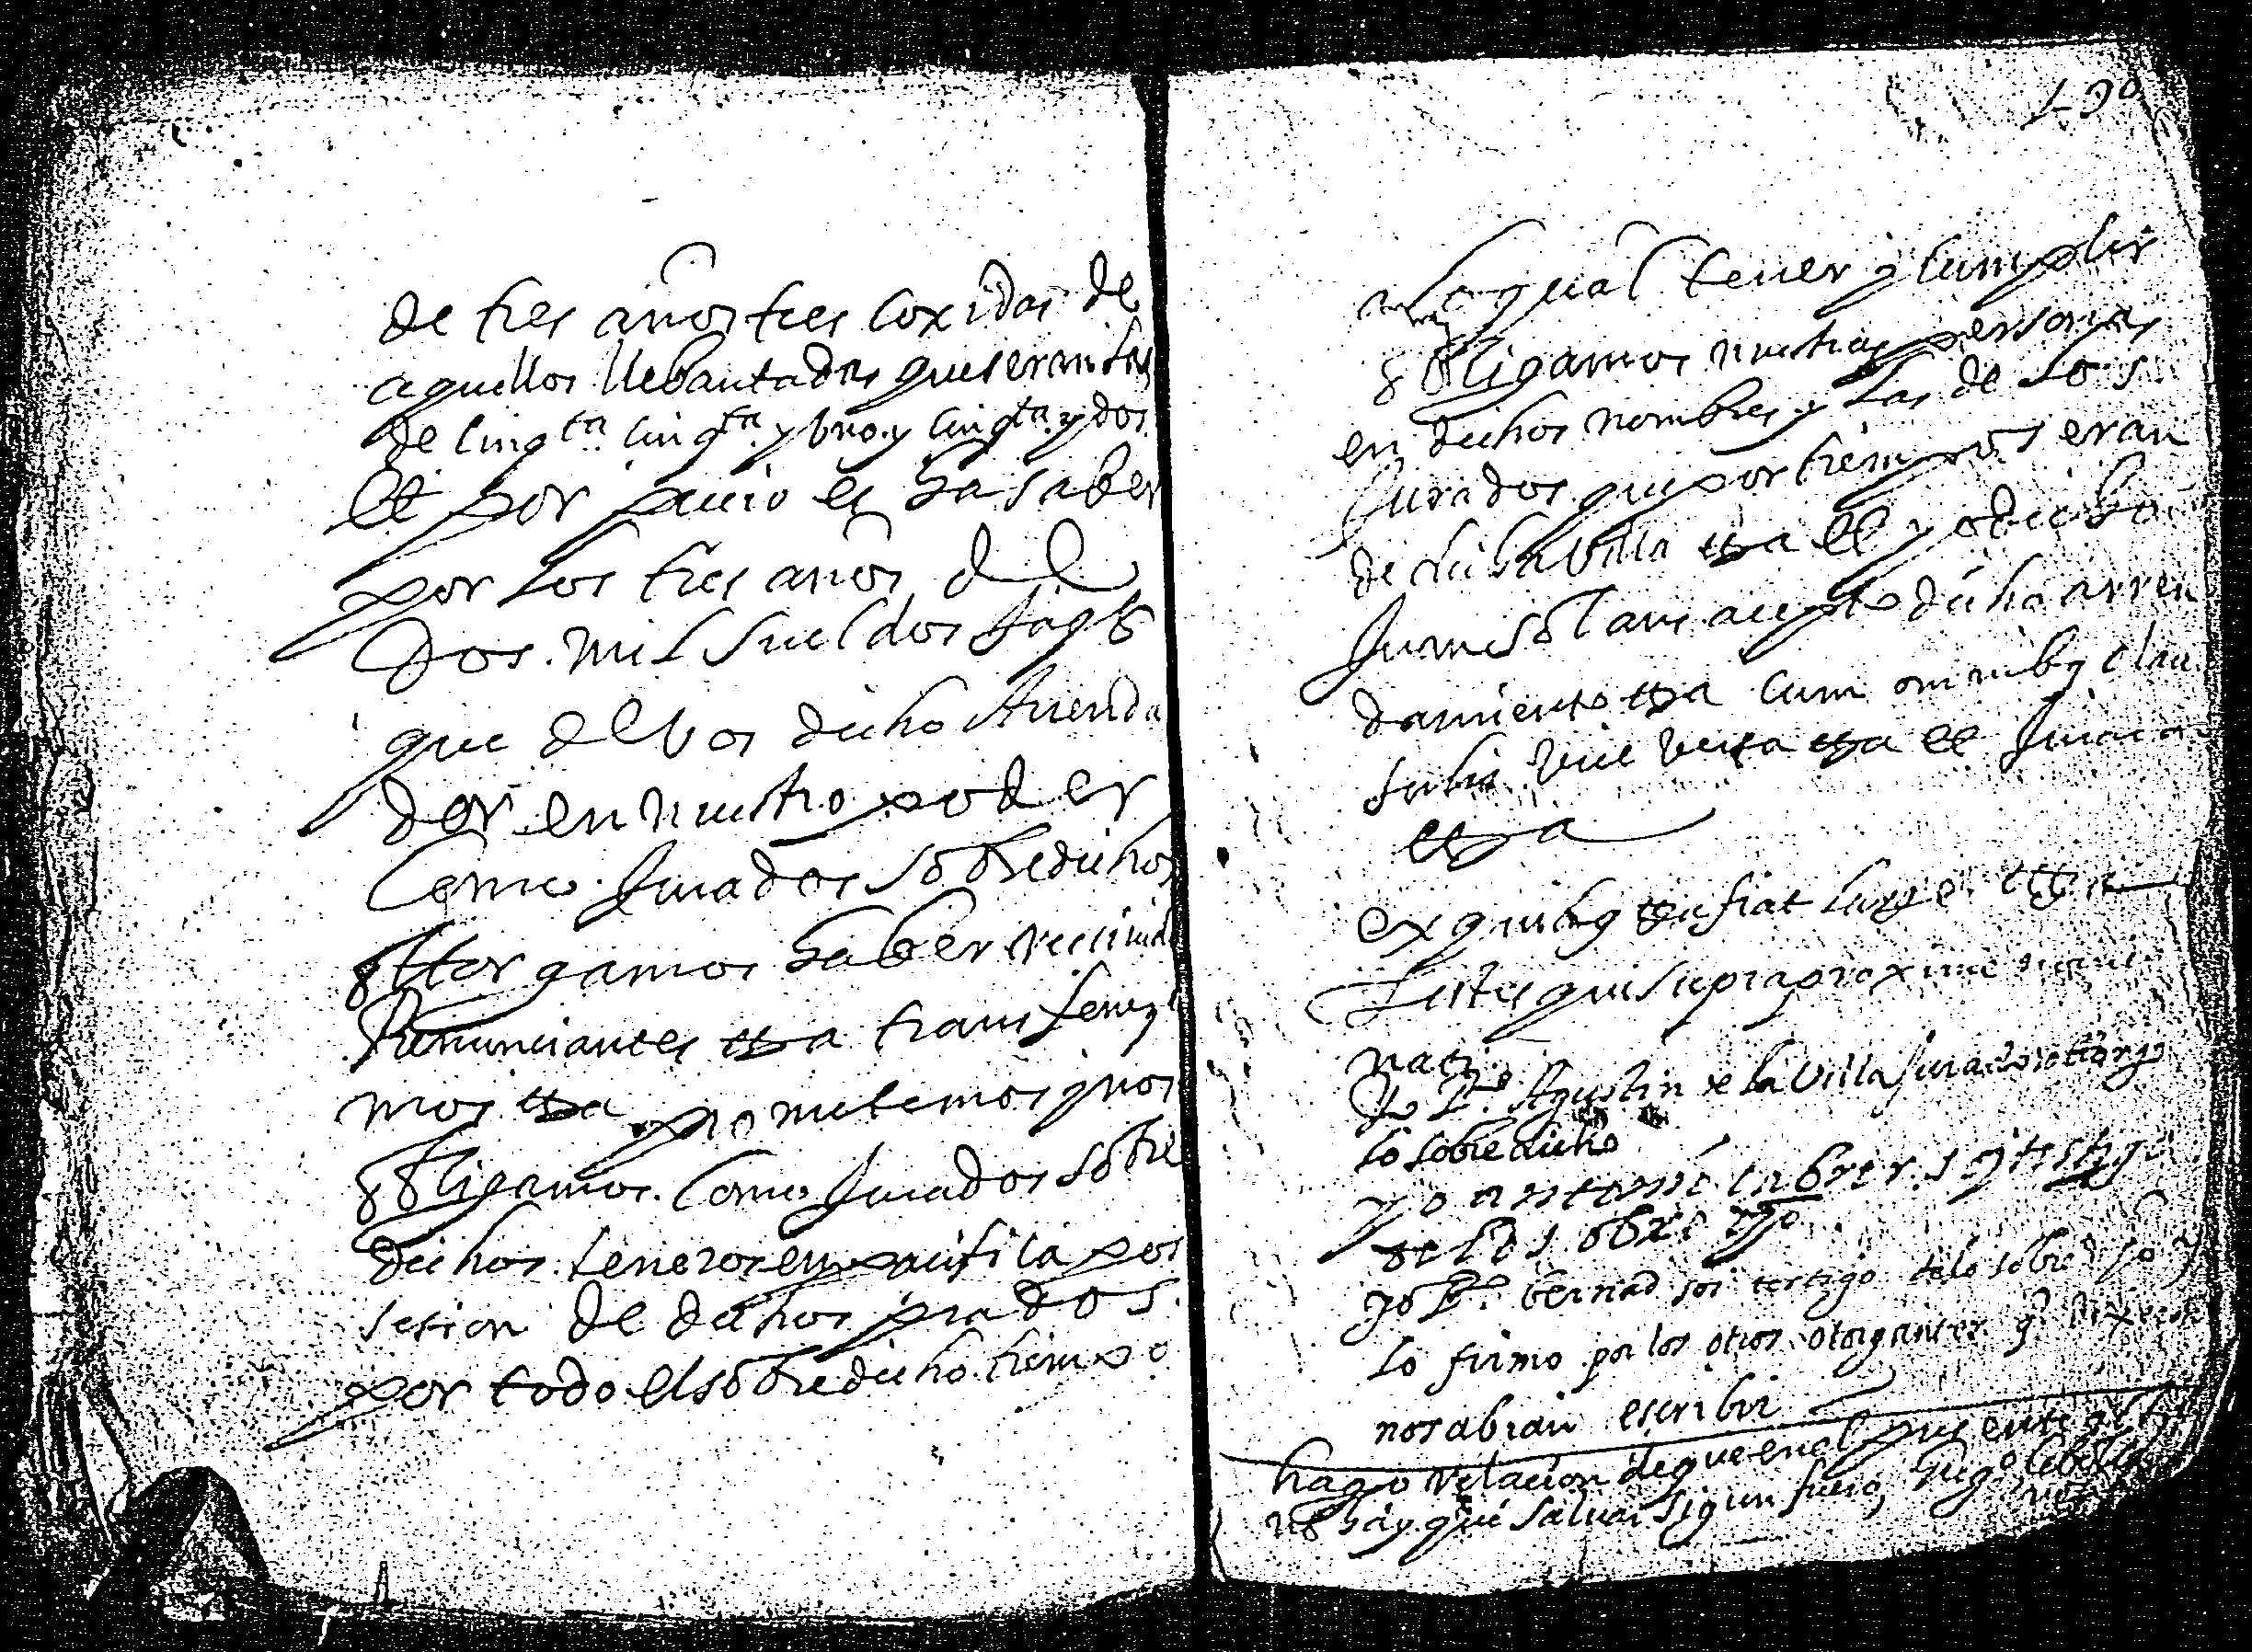 de tres años tres coxidas de
aquellos llebantadas que seran las
de cinqta. cinqta. y uno. y cinqta. y dos.
Et por precio es ha saber
por los tres años de
Dos. mil sueldos Jaqs
que de vos dicho Arrenda
dor en nuestro poder
Como Jurados sobredichos
ottorgamos haber recivido
Renunciantes ettra transferez
mos ettra prometemos y nos
obligamos. Como Jurados sobre
dichos. teneros en pacifica pos
sesion de dichos prados.
por todo el sobredicho tiempo
lo qual tener y cumplir
obligamos nuestras personas
en dichos nombres y las de los
Jurados que por tiempo seran
de dicha Villa ettra et yo dicho
acepto dicho arren
damiento ettra Cum omnibus clau
ettra et
ettra
ex quibus fiat large ettra
Testes qui supra proxime nomi
nati
Yo Pe. Agustin de la Villa Jurado otorgo
lo sobredicho
yo antoni cabrer soi testigo
de lo sobre dgo
yo Pe. bernad soi testigo de lo sobred ho y
lo firmo por los otros otorgantes q dixeron
no sabian escribir
hago relacion de que en el presente acto
no hay que salvar sigun fuero,